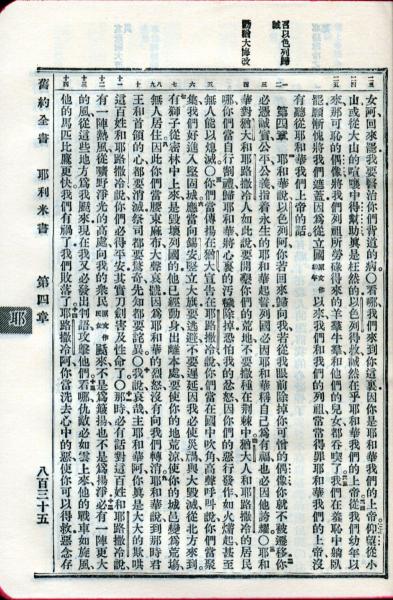 召以色列歸
誠
勸諭大悔改
女阿回來罷我要醫治你們背道的病〇看哪我們來到你這裏因你是耶和華我們的上帝仰望從小
山或從大山的喧嚷中得幫助眞是枉然的以色列得救誠然在乎耶和華我們的上帝從我們幼年以
來那可恥的偶像將我們列祖所勞碌得來的羊羣牛羣和他們的兒女都吞喫了我們在羞恥中躺臥
罷願慚愧將我們遮蓋因爲從立國原文作幼年以來我們和我們的列祖常常得罪耶和華我們的上帝沒
有聽從耶和華我們上帝的話。
第四章 耶和華說以色列阿你若回來歸向我若從我眼前除掉你可憎的偶像你就不被遷移你
必憑誠實公平公義指着永生的耶和華起誓列國必因耶和華稱自己爲有福也必因他誇耀〇耶和
華對猶大和耶路撒冷人如此說要開墾你們的荒地不要撒種在荊棘中猶大人和耶路撒冷的居民
哪你們當自行割禮歸耶和華將心裏的污穢除掉恐怕我的忿怒因你們的惡行發作如火燃起甚至
無人能以熄滅〇你們當傳揚在猶大宣告在耶路撒冷說你們當在國中吹角高聲呼叫說你們當聚
集我們好進入堅固城應當向錫安豎立大旗要逃避不要遲延因我必使災禍與大毀滅從北方來到
有獅子從密林中上來是毀壞列國的他已經動身出離本處要使你的地荒涼使你的城邑變爲荒塲
無人居住因此你們當腰束麻布大聲哀號因爲耶和華的烈怒沒有向我們轉消耶和華說到那時君
王和首領的心都要消滅祭司都要驚奇先知都要詫異我說哀哉主耶和華阿你眞是大大的欺哄
這百姓和耶路撒冷說你們必得平安其實刀劍害及性命了〇那時必有話對這百姓和耶路撒冷說
有一陣熱風從曠野淨光的高處向我的衆民原文作民女颳來不是爲簸揚也不是爲揚淨必有一陣更大
的風從這些地方爲我颳來現在我又必發出判語攻擊他們看哪仇敵必如雲上來他的戰車如旋風
他的馬匹比鷹更快我們有禍了我們敗落了耶路撒冷阿你當洗去心中的惡使你可以得救惡念存
舊約全書 耶利米書 第四章 八百三十五
耶